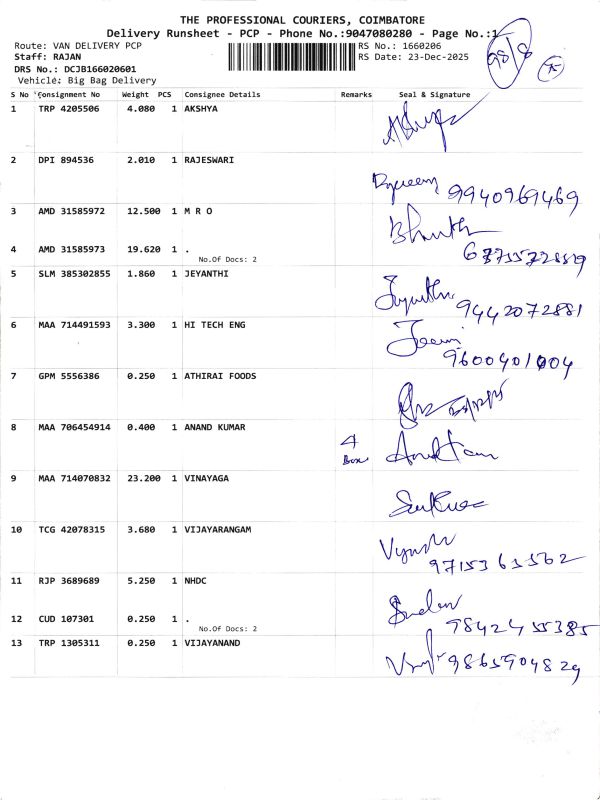 THE PROFESSIONAL COURIERS, COIMBATORE
Delivery Runsheet - PCP - Phone No.:9047080280 - Page No.:1
98/8
Route: VAN DELIVERY PCP RS No.: 1660206
Staff: RAJAN RS Date: 23-Dec-2025
DRS No.: DCJB166020601
Vehicle: Big Bag Delivery
S No Consignment No Weight PCS Consignee Details Remarks Seal & Signature
1 TRP 4205506 4.080 1 AKSHYA
2 DPI 894536 2.010 1 RAJESWARI
9940969469
3 AMD 31585972 12.500 1 M R O
4 AMD 31585973 19.620 1 .
No.Of Docs: 2
5 SLM 385302855 1.860 1 JEYANTHI
9442072881
6 MAA 714491593 3.300 1 HI TECH ENG
9600401004
7 GPM 5556386 0.250 1 ATHIRAI FOODS
8 MAA 706454914 0.400 1 ANAND KUMAR
4
Box
9 MAA 714070832 23.200 1 VINAYAGA
10 TCG 42078315 3.680 1 VIJAYARANGAM
9715361562
11 RJP 3689689 5.250 1 NHDC
12 CUD 107301 0.250 1 .
No.Of Docs: 2
9842455385
13 TRP 1305311 0.250 1 VIJAYANAND
9865904829